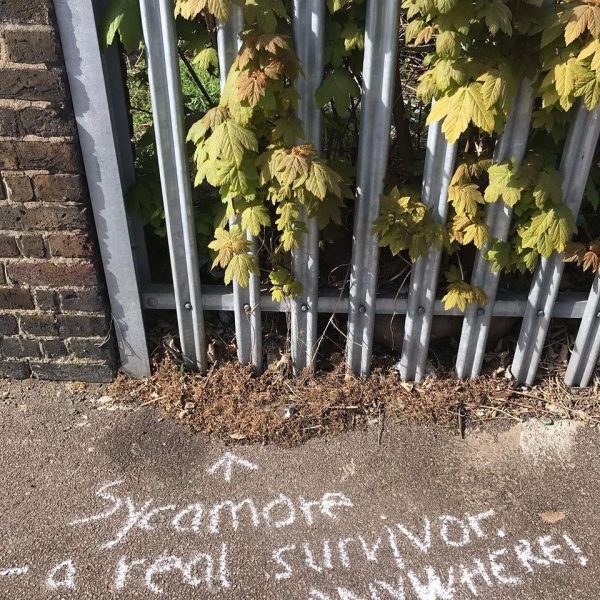 Sycamore
- a real survivor.
ANYWHERE!